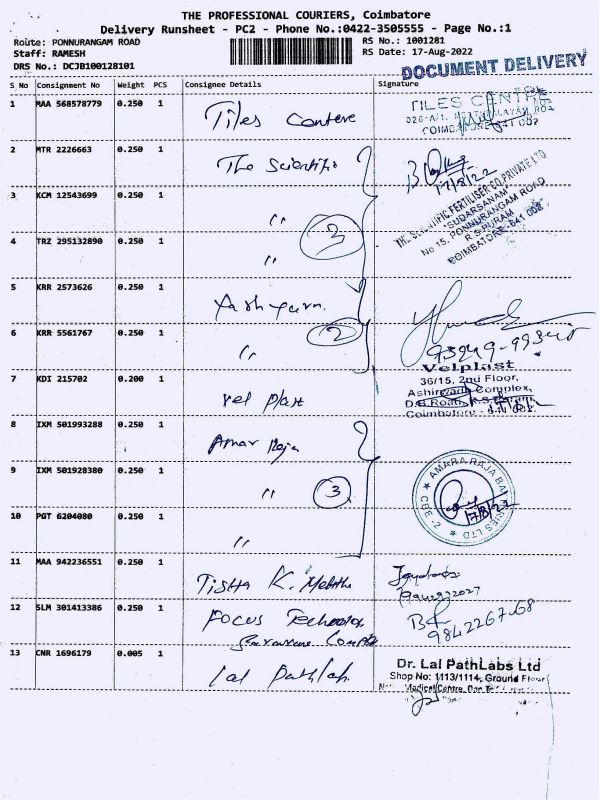 THE PROFESSIONAL COURIERS, Coimbatore
Delivery Runsheet - PC2 - Phone No.:0422-3505555 - Page No.:1
Route: PONNURANGAM ROAD
RS No.: 1001281
Staff: RAMESH
RS Date: 17-Aug-2022
DRS No.: DCJB100128101
DOCUMENT DELIVERY
S No Consignment No Weight PCS Consignee Details Signature
1 MAA 568578779 0.250 1 Tiles Centere
TILES CENTRE
COIMBATORE 641 002
2 MTR 2226663 0.250 1 The Scientific
17/8/22
3 KCM 12543699 0.250 1 "
3
THE SCIENTIFIC FERTILISER CO PRIVATE LTD
"SUDARSANAM"
No 15, PONNURANGAM ROAD
R S PURAM
COIMBATORE-641 002
4 TRZ 295132890 0.250 1 "
5 KRR 2573626 0.250 1
2
6 KRR 5561767 0.250 1 "
Velplast
36/15, 2nd Floor,
Ashirwadh Complex,
D.B.Road, R.S.
Coimbatore -
7 KDI 215702 0.200 1 vel plast
8 IXM 501993288 0.250 1 Amar Raja
9 IXM 501928380 0.250 1 "
3
AMARA RAJA BATTERIES LTD
CBE - 2
17/8/22
10 PGT 6204080 0.250 1 "
11 MAA 942236551 0.250 1 Tisha K. Mehtha
12 SLM 301413386 0.250 1 Focus
9842267068
13 CNR 1696179 0.005 1 Lal Pathlab
Dr. Lal PathLabs Ltd
Shop No: 1113/1114, Ground Floor
Medical Centre,